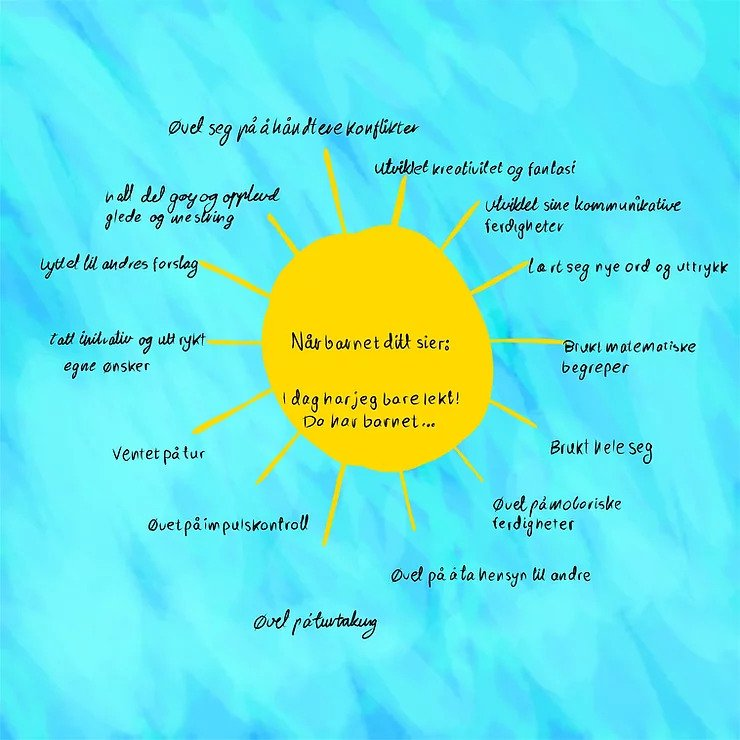 Når barnet ditt sier:
I dag har jeg bare lekt!
Da har barnet...
Øvet seg på å håndtere konflikter
Utviklet kreativitet og fantasi
Utviklet sine kommunikative
ferdigheter
Lært seg nye ord og uttrykk
Brukt matematiske
begreper
Brukt hele seg
Øvet på motoriske
ferdigheter
Øvet på å ta hensyn til andre
Øvet på turtaking
Øvet på impulskontroll
Ventet på tur
tatt initiativ og uttrykt
egne ønsker
Lyttet til andres forslag
hatt det gøy og opplevd
glede og mestring